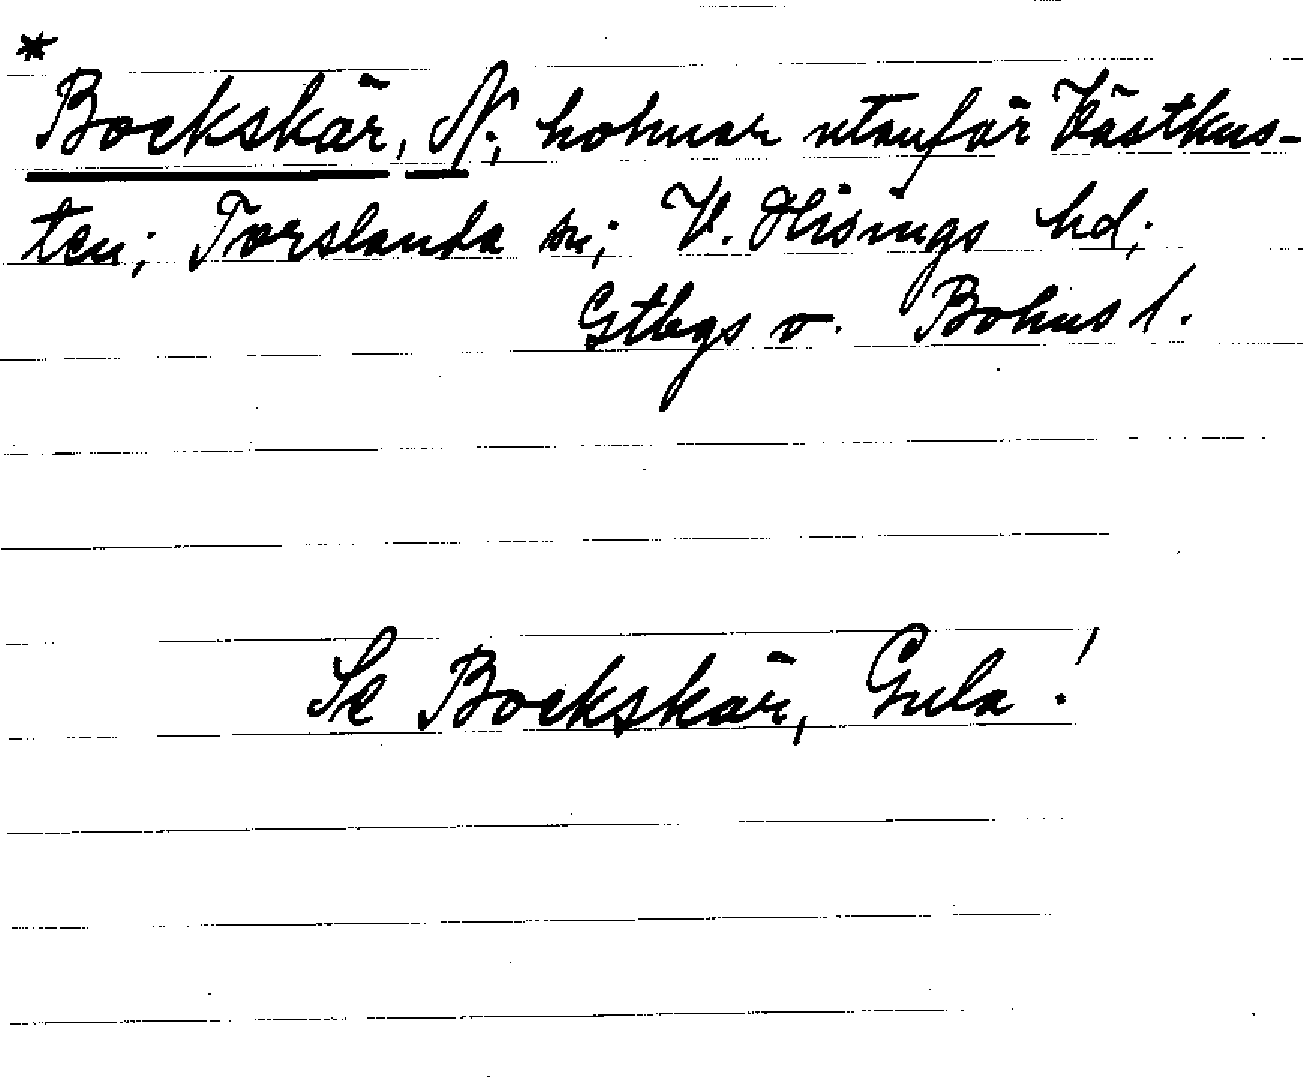 *
Bockskär, N., holmar utanför Västkus-
ten; Torslanda sn; V. Hisings hd;
Gtbgs o. Bohus l.
Se Bockskär, Gula!